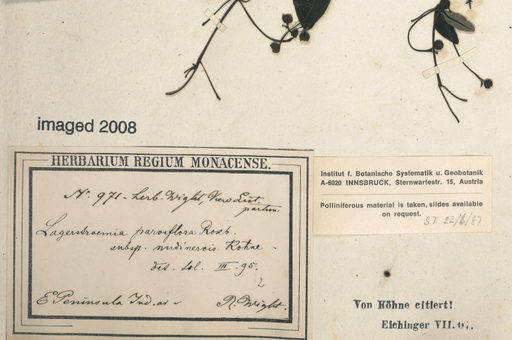 imaged 2008
HERBARIUM REGIUM MONACENSE.
No. 971 - herb. Wight, Kew Dist.
partim.
Lagerstroemia parviflora Roxb.
subsp. Köhne
III. 95.
E Peninsula Ind. or R. Wight.
Institut f. Botanische Systematik u. Geobotanik
A-6020 INNSBRUCK, Sternwartestr. 15, Austria
Polliniferous material is taken, slides available
on request.
ST 22/6/87
Von Köhne citiert!
Eichinger VII.07.